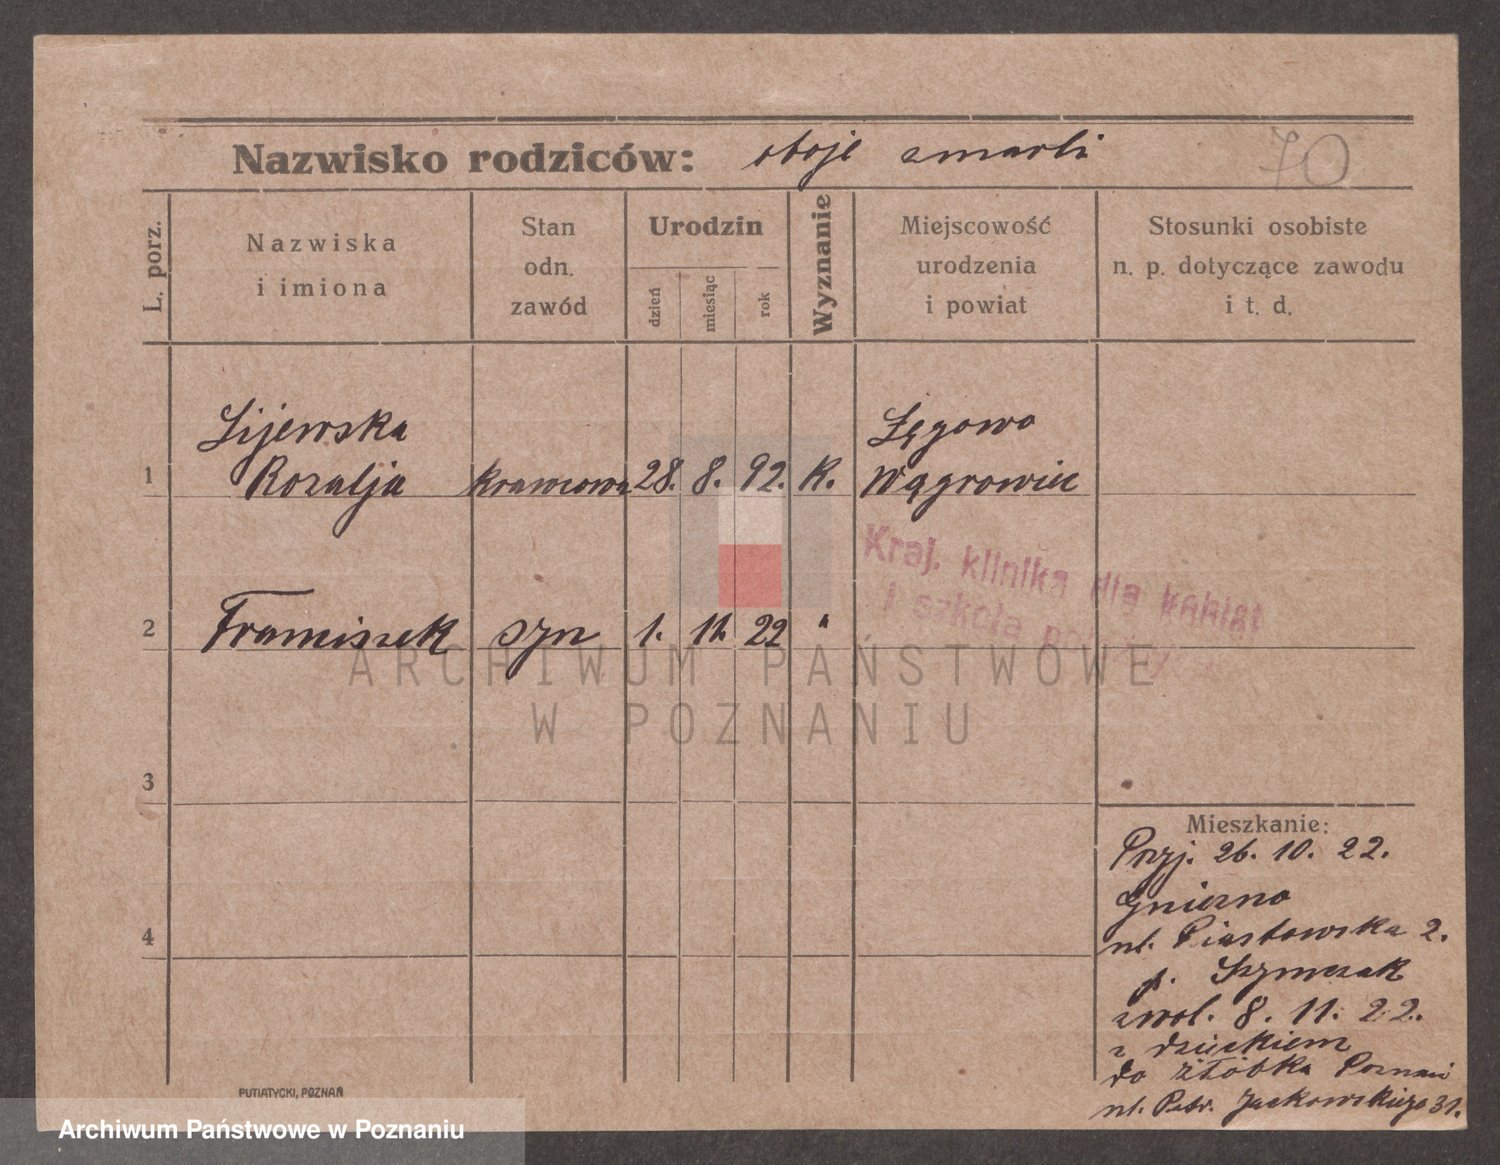 Nazwisko rodziców: oboje zmarli
70
L. porz.
Nazwiska
i imiona
Stan
odn.
zawód
Urodzin
dzień
miesiąc
rok
Wyznanie
Miejscowość
urodzenia
i powiat
Stosunki osobiste
n. p. dotyczące zawodu
i t. d.
Lijewska Łęgowo
1 Rozalja krawcowa 28. 8. 92. K. Wągrowiec
Kraj. klinika dla kobiet
i szkoła
2 Franciszek syn 1. 11. 22 "
ARCHIWUM PAŃSTWOWE
W POZNANIU
3
4
Mieszkanie:
Przyj. 26. 10. 22.
Gniezno
ul. Piastowska 2.
p. Szymczak
zwol. 8. 11. 22.
z dzieckiem
do żłóbka Poznań
ul. Patr. Jackowskiego 31.
PUTIATYCKI, POZNAŃ
Archiwum Państwowe w Poznaniu